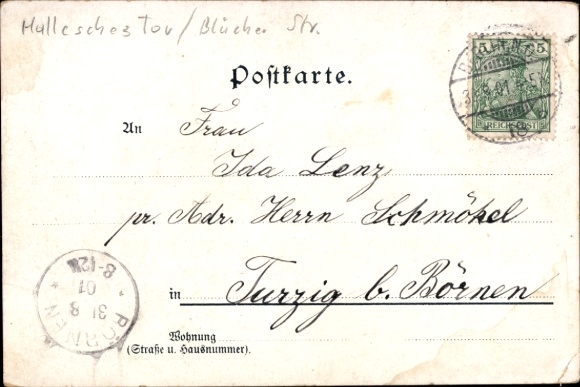 Hallesches Tor / Blücher Str.
Postkarte.
5 5
REICHSPOST
31 8 01
An Frau
Ida Lenz
pr. Adr. Herrn Schmökel
in Turzig b. Börnen
Wohnung
(Straße u. Hausnummer).
BÖRNEN
31 8
01
8-12V